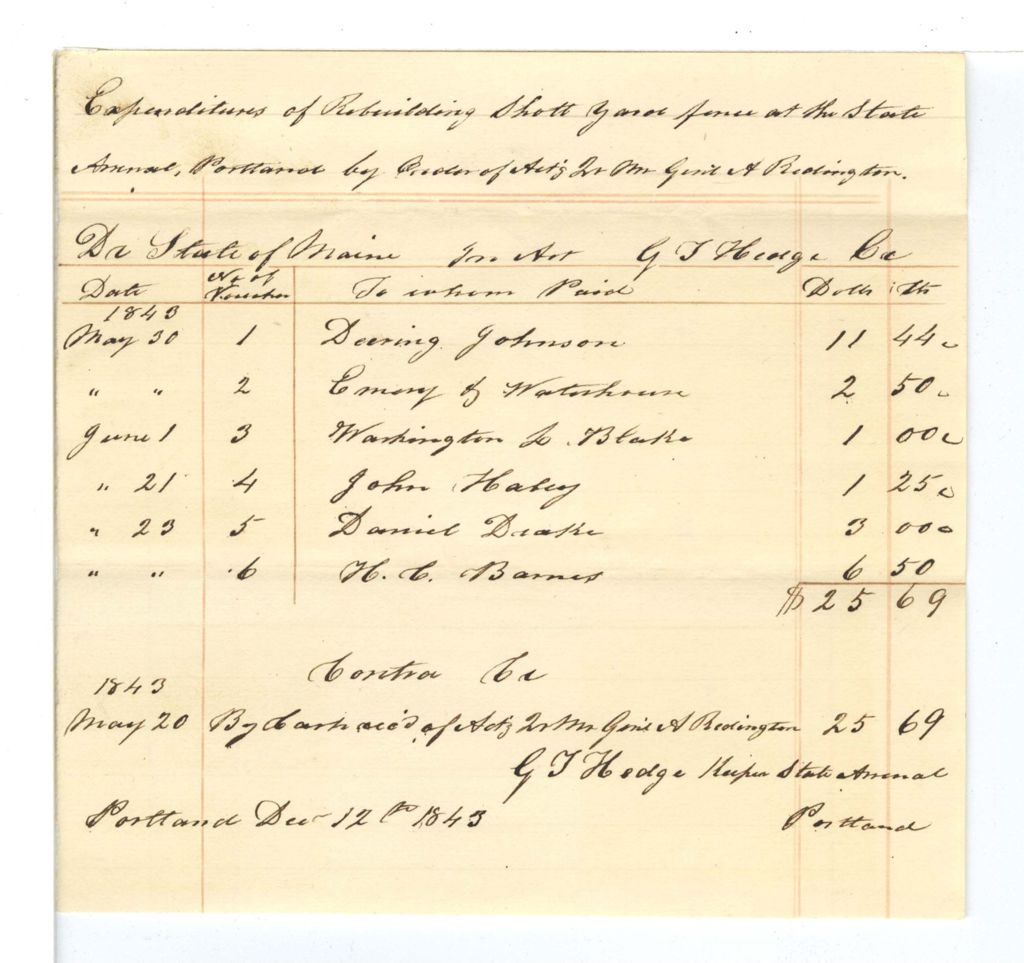 Expenditures of Rebuilding Shott Yard fence at the State
Arsenal, Portland by Order of Act'g Qr Mr Gen'l A Redington.
Dr State of Maine In Act G T Hedge Cr
Date No of Voucher To whom Paid Dolls Cts
1843
May 30 1 Deering Johnson 11 44
" " 2 Emery & Waterhouse 2 50
June 1 3 Washington L. Blake 1 00
" 21 4 John Haley 1 25
" 23 5 Daniel Drake 3 00
" " 6 H. C. Barnes 6 50
$ 25 69
Contra Cr
1843
May 20 By Cash rec'd of Act'g Qr Mr Gen'l A Redington 25 69
G T Hedge Keeper State Arsenal
Portland Dec 12th 1843 Portland